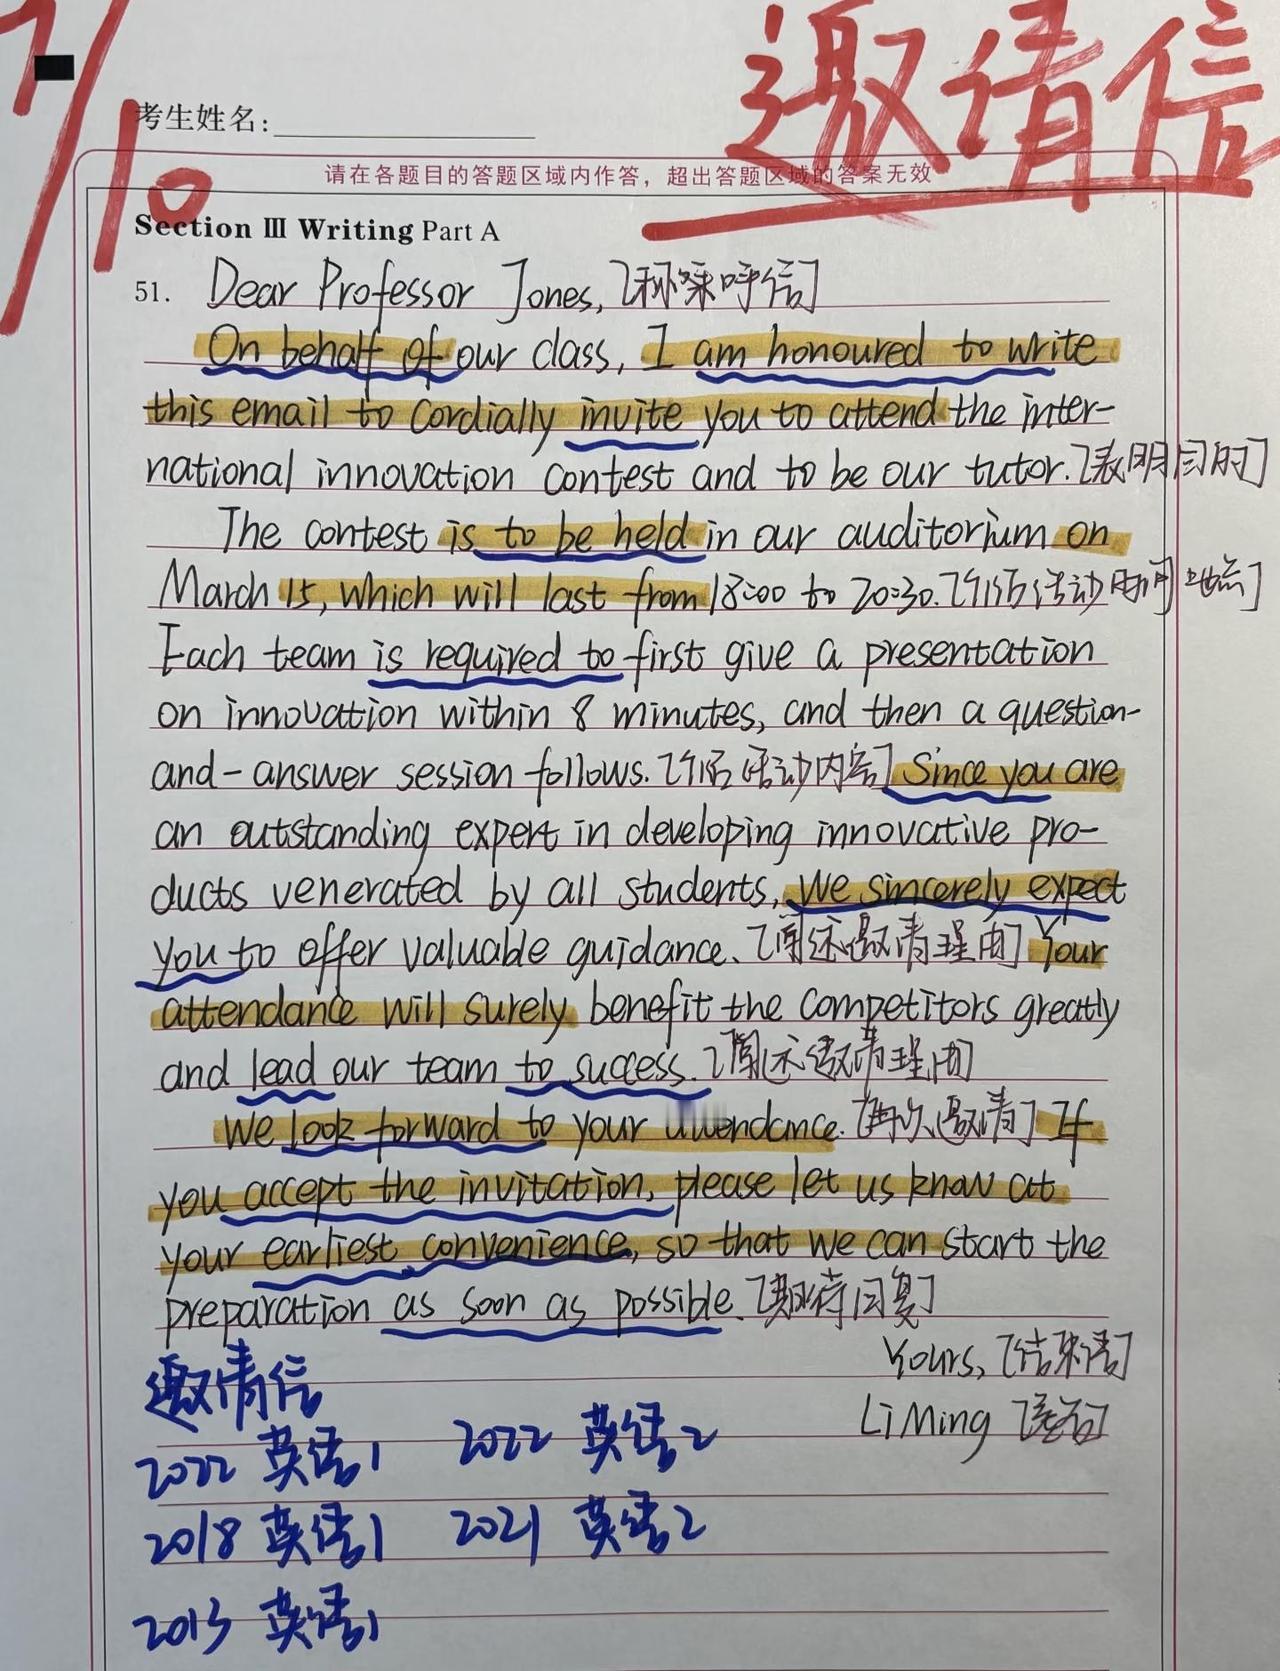 1/10
邀请信
考生姓名:
请在各题目的答题区域内作答，超出答题区域的答案无效
Section Ⅲ Writing Part A
51. Dear Professor Jones,[称呼语]
On behalf of our class, I am honoured to write
this email to cordially invite you to attend the inter-
national innovation contest and to be our tutor.[表明目的]
The contest is to be held in our auditorium on
March 15, which will last from 18:00 to 20:30.[介绍活动时间地点]
Each team is required to first give a presentation
on innovation within 8 minutes, and then a question-
and-answer session follows.[介绍活动内容] Since you are
an outstanding expert in developing innovative pro-
ducts venerated by all students, we sincerely expect
you to offer valuable guidance.[阐述邀请理由] Your
attendance will surely benefit the competitors greatly
and lead our team to success.[阐述邀请理由]
We look forward to your attendance.[再次邀请] If
you accept the invitation, please let us know at
your earliest convenience, so that we can start the
preparation as soon as possible.[期待回复]
Yours,[结束语]
Li Ming [签名]
邀请信
2022 英语1 2022 英语2
2018 英语1 2021 英语2
2013 英语1